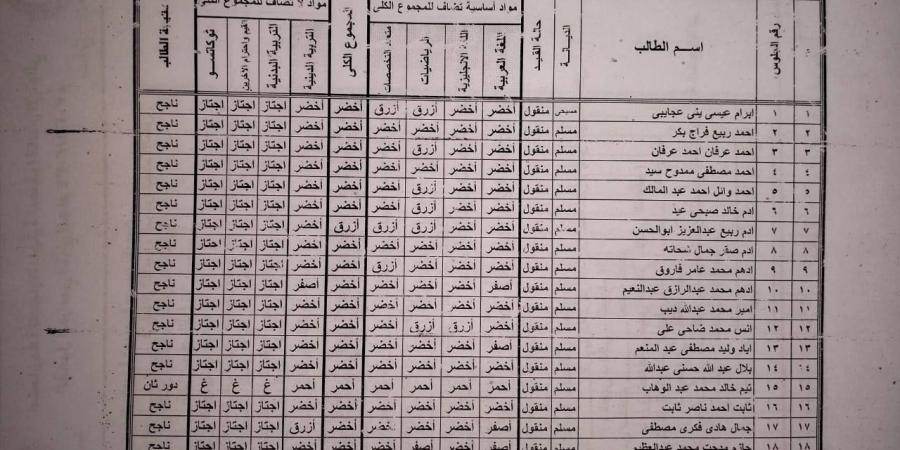 مواد أساسية تضاف للمجموع الكلى
مواد لا تضاف للمجموع الكلى
م رقم الجلوس اســم الطالب الديانـة حالة القيد اللغة العربية اللغة الانجليزية الرياضيات متعدد التخصصات المجموع الكلى التربية الدينية التربية البدنية القيم واحترام الاخرين توكاتسو الطالب
١ ١ ابرام عيسى ينى عجايبى مسيحى منقول أخضر أخضر أزرق أزرق أخضر أخضر اجتاز اجتاز اجتاز ناجح
٢ ٢ احمد ربيع فراج بكر مسلم منقول أخضر أخضر أخضر أخضر أخضر أخضر اجتاز اجتاز اجتاز ناجح
٣ ٣ احمد عرفان احمد عرفان مسلم منقول أخضر أخضر أزرق أخضر أخضر أخضر اجتاز اجتاز اجتاز ناجح
٤ ٤ احمد مصطفى ممدوح سيد مسلم منقول أخضر أخضر أخضر أخضر أخضر أخضر اجتاز اجتاز اجتاز ناجح
٥ ٥ احمد وائل احمد عبد المالك مسلم منقول أخضر أخضر أزرق أخضر أخضر أخضر اجتاز اجتاز اجتاز ناجح
٦ ٦ ادم خالد صبحى عيد مسلم منقول أخضر أخضر أزرق أخضر أخضر أخضر اجتاز اجتاز اجتاز ناجح
٧ ٧ ادم ربيع عبدالعزيز ابوالحسن مسلم منقول أخضر أزرق أزرق أزرق أزرق أخضر اجتاز اجتاز اجتاز ناجح
٨ ٨ ادم صقر جمال شحاته مسلم منقول أخضر أخضر أخضر أخضر أخضر أخضر اجتاز اجتاز اجتاز ناجح
٩ ٩ ادهم محمد عامر فاروق مسلم منقول أخضر أخضر أخضر أزرق أخضر أخضر اجتاز اجتاز اجتاز ناجح
١٠ ١٠ ادهم محمد عبدالرازق عبدالنعيم مسلم منقول أصفر أخضر أخضر أخضر أخضر أصفر اجتاز اجتاز اجتاز ناجح
١١ ١١ امير محمد عبدالله ديب مسلم منقول أخضر أخضر أخضر أخضر أخضر أخضر اجتاز اجتاز اجتاز ناجح
١٢ ١٢ انس محمد ضاحى على مسلم منقول أخضر أزرق أزرق أخضر أخضر أخضر اجتاز اجتاز اجتاز ناجح
١٣ ١٣ اياد وليد مصطفى عبد المنعم مسلم منقول أصفر أخضر أخضر أخضر أخضر أخضر اجتاز اجتاز اجتاز ناجح
١٤ ١٤ بلال عبد الله حسنى عبدالله مسلم منقول أخضر أخضر أخضر أخضر أخضر أخضر اجتاز اجتاز اجتاز ناجح
١٥ ١٥ تيم خالد محمد عبد الوهاب مسلم منقول أحمر أحمر أحمر أحمر أحمر أحمر غ غ غ دور ثان
١٦ ١٦ ثابت احمد ناصر ثابت مسلم منقول أخضر أخضر أخضر أخضر أخضر أخضر اجتاز اجتاز اجتاز ناجح
١٧ ١٧ جمال هادى فكرى مصطفى مسلم منقول أصفر أخضر أخضر أخضر أخضر أزرق اجتاز اجتاز اجتاز ناجح
١٨ ١٨ حازم مدحت محمد عبدالعظيم مسلم منقول أصفر أخضر أصفر أخضر أخضر أخضر اجتاز اجتاز اجتاز ناجح